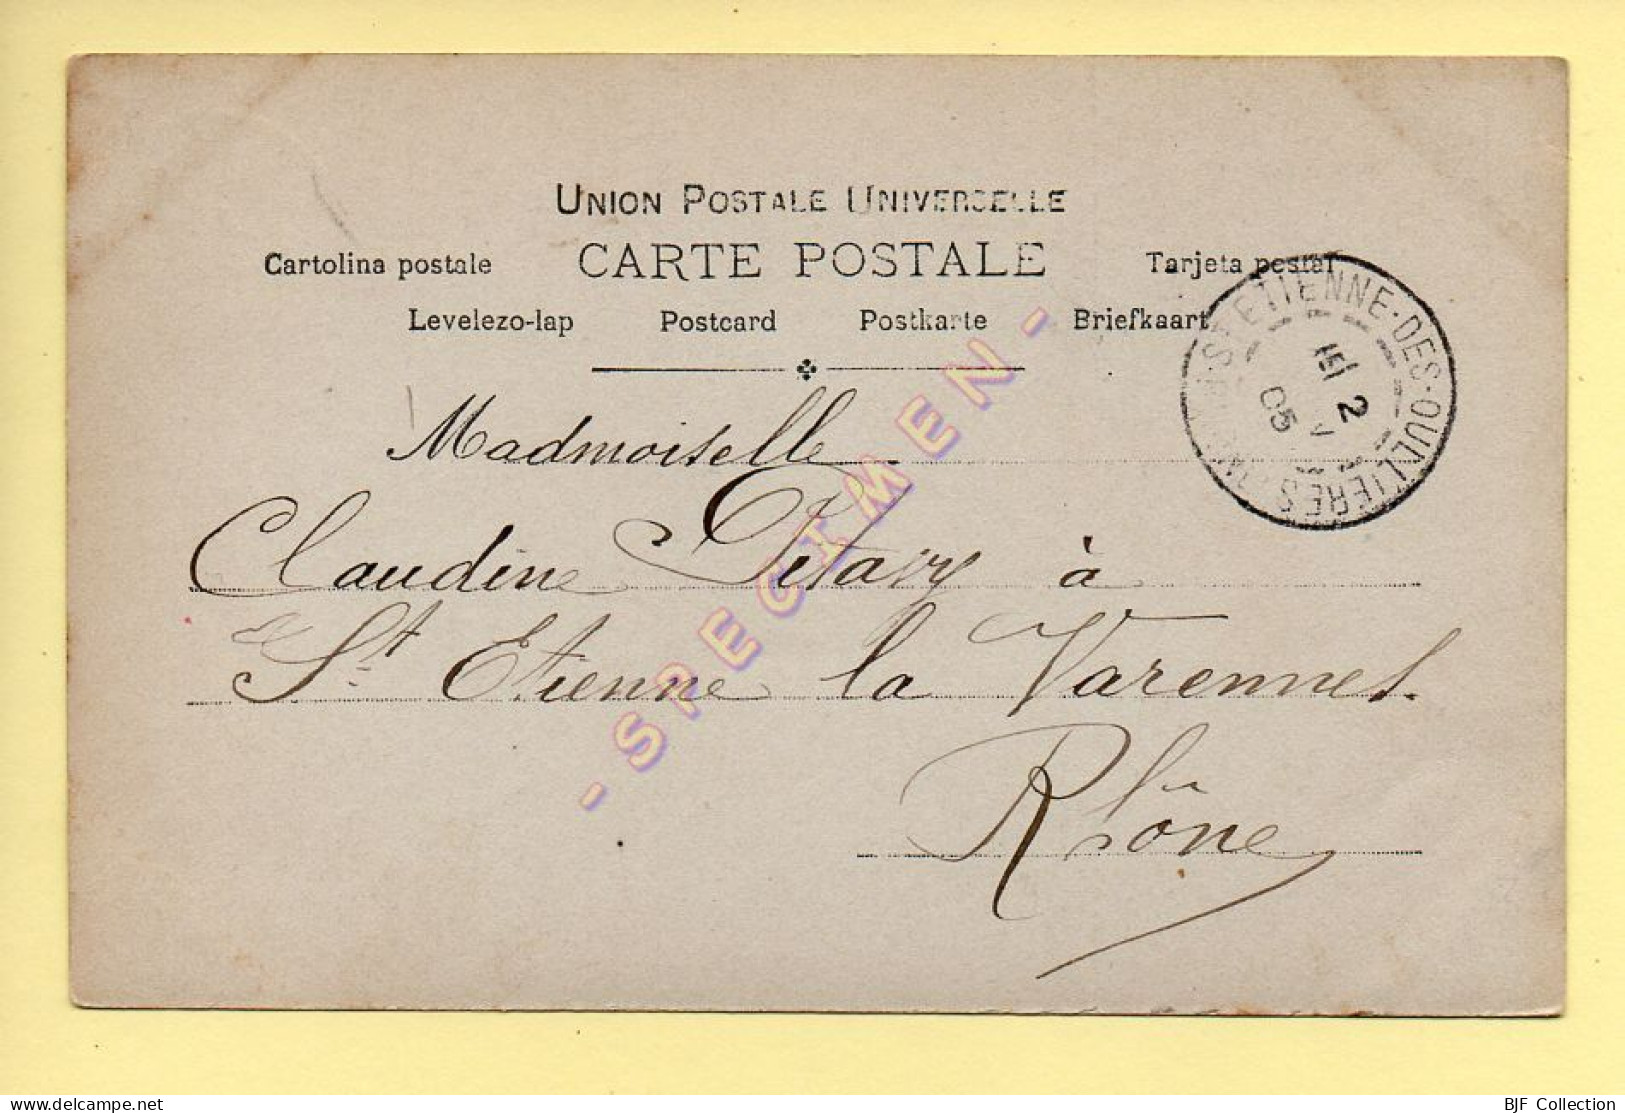 UNION POSTALE UNIVERSELLE
CARTE POSTALE
Cartolina postale
Tarjeta postal
Levelezo-lap Postcard Postkarte Briefkaart
ST ETIENNE-DES-OULLIERES
2
05
Mademoiselle
Claudine à
St Etienne la Varennes.
Rhône
- SPECIMEN -
posted on www.delcampe.net
BJF Collection